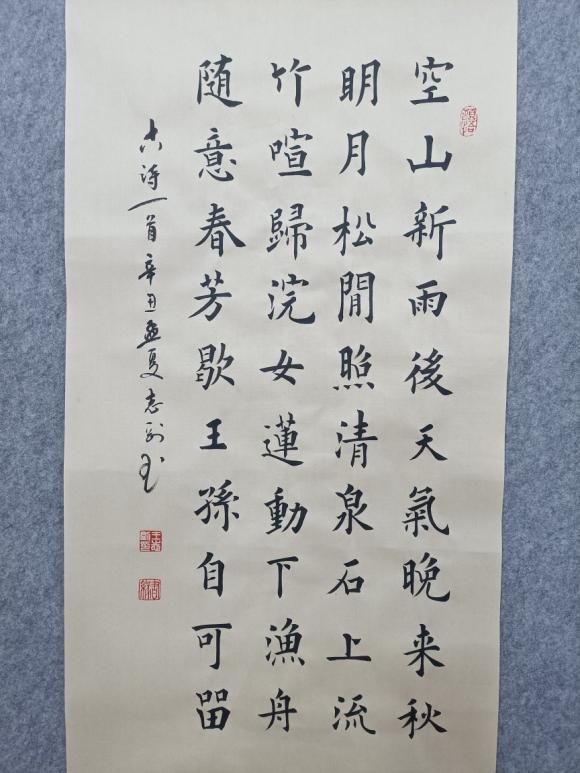 空山新雨後天氣晚来秋
明月松間照清泉石上流
竹喧歸浣女蓮動下漁舟
随意春芳歇王孫自可留
古詩一首辛丑孟夏志刚书